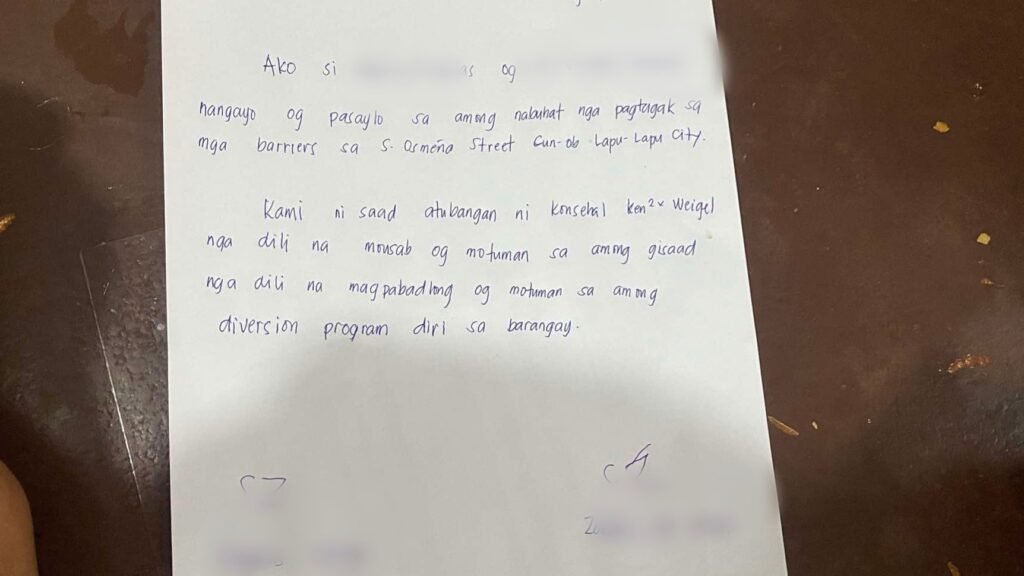 Ako si og
nangayo og pasaylo sa among nabuhat nga pagtagak sa
mga barriers sa S. Osmeña Street Gun-ob Lapu-Lapu City.
Kami ni saad atubangan ni konsehal Ken²ˣ Weigel
nga dili na mousab og motuman sa among gisaad
nga dili na magpabadlong og motuman sa among
diversion program diri sa barangay.